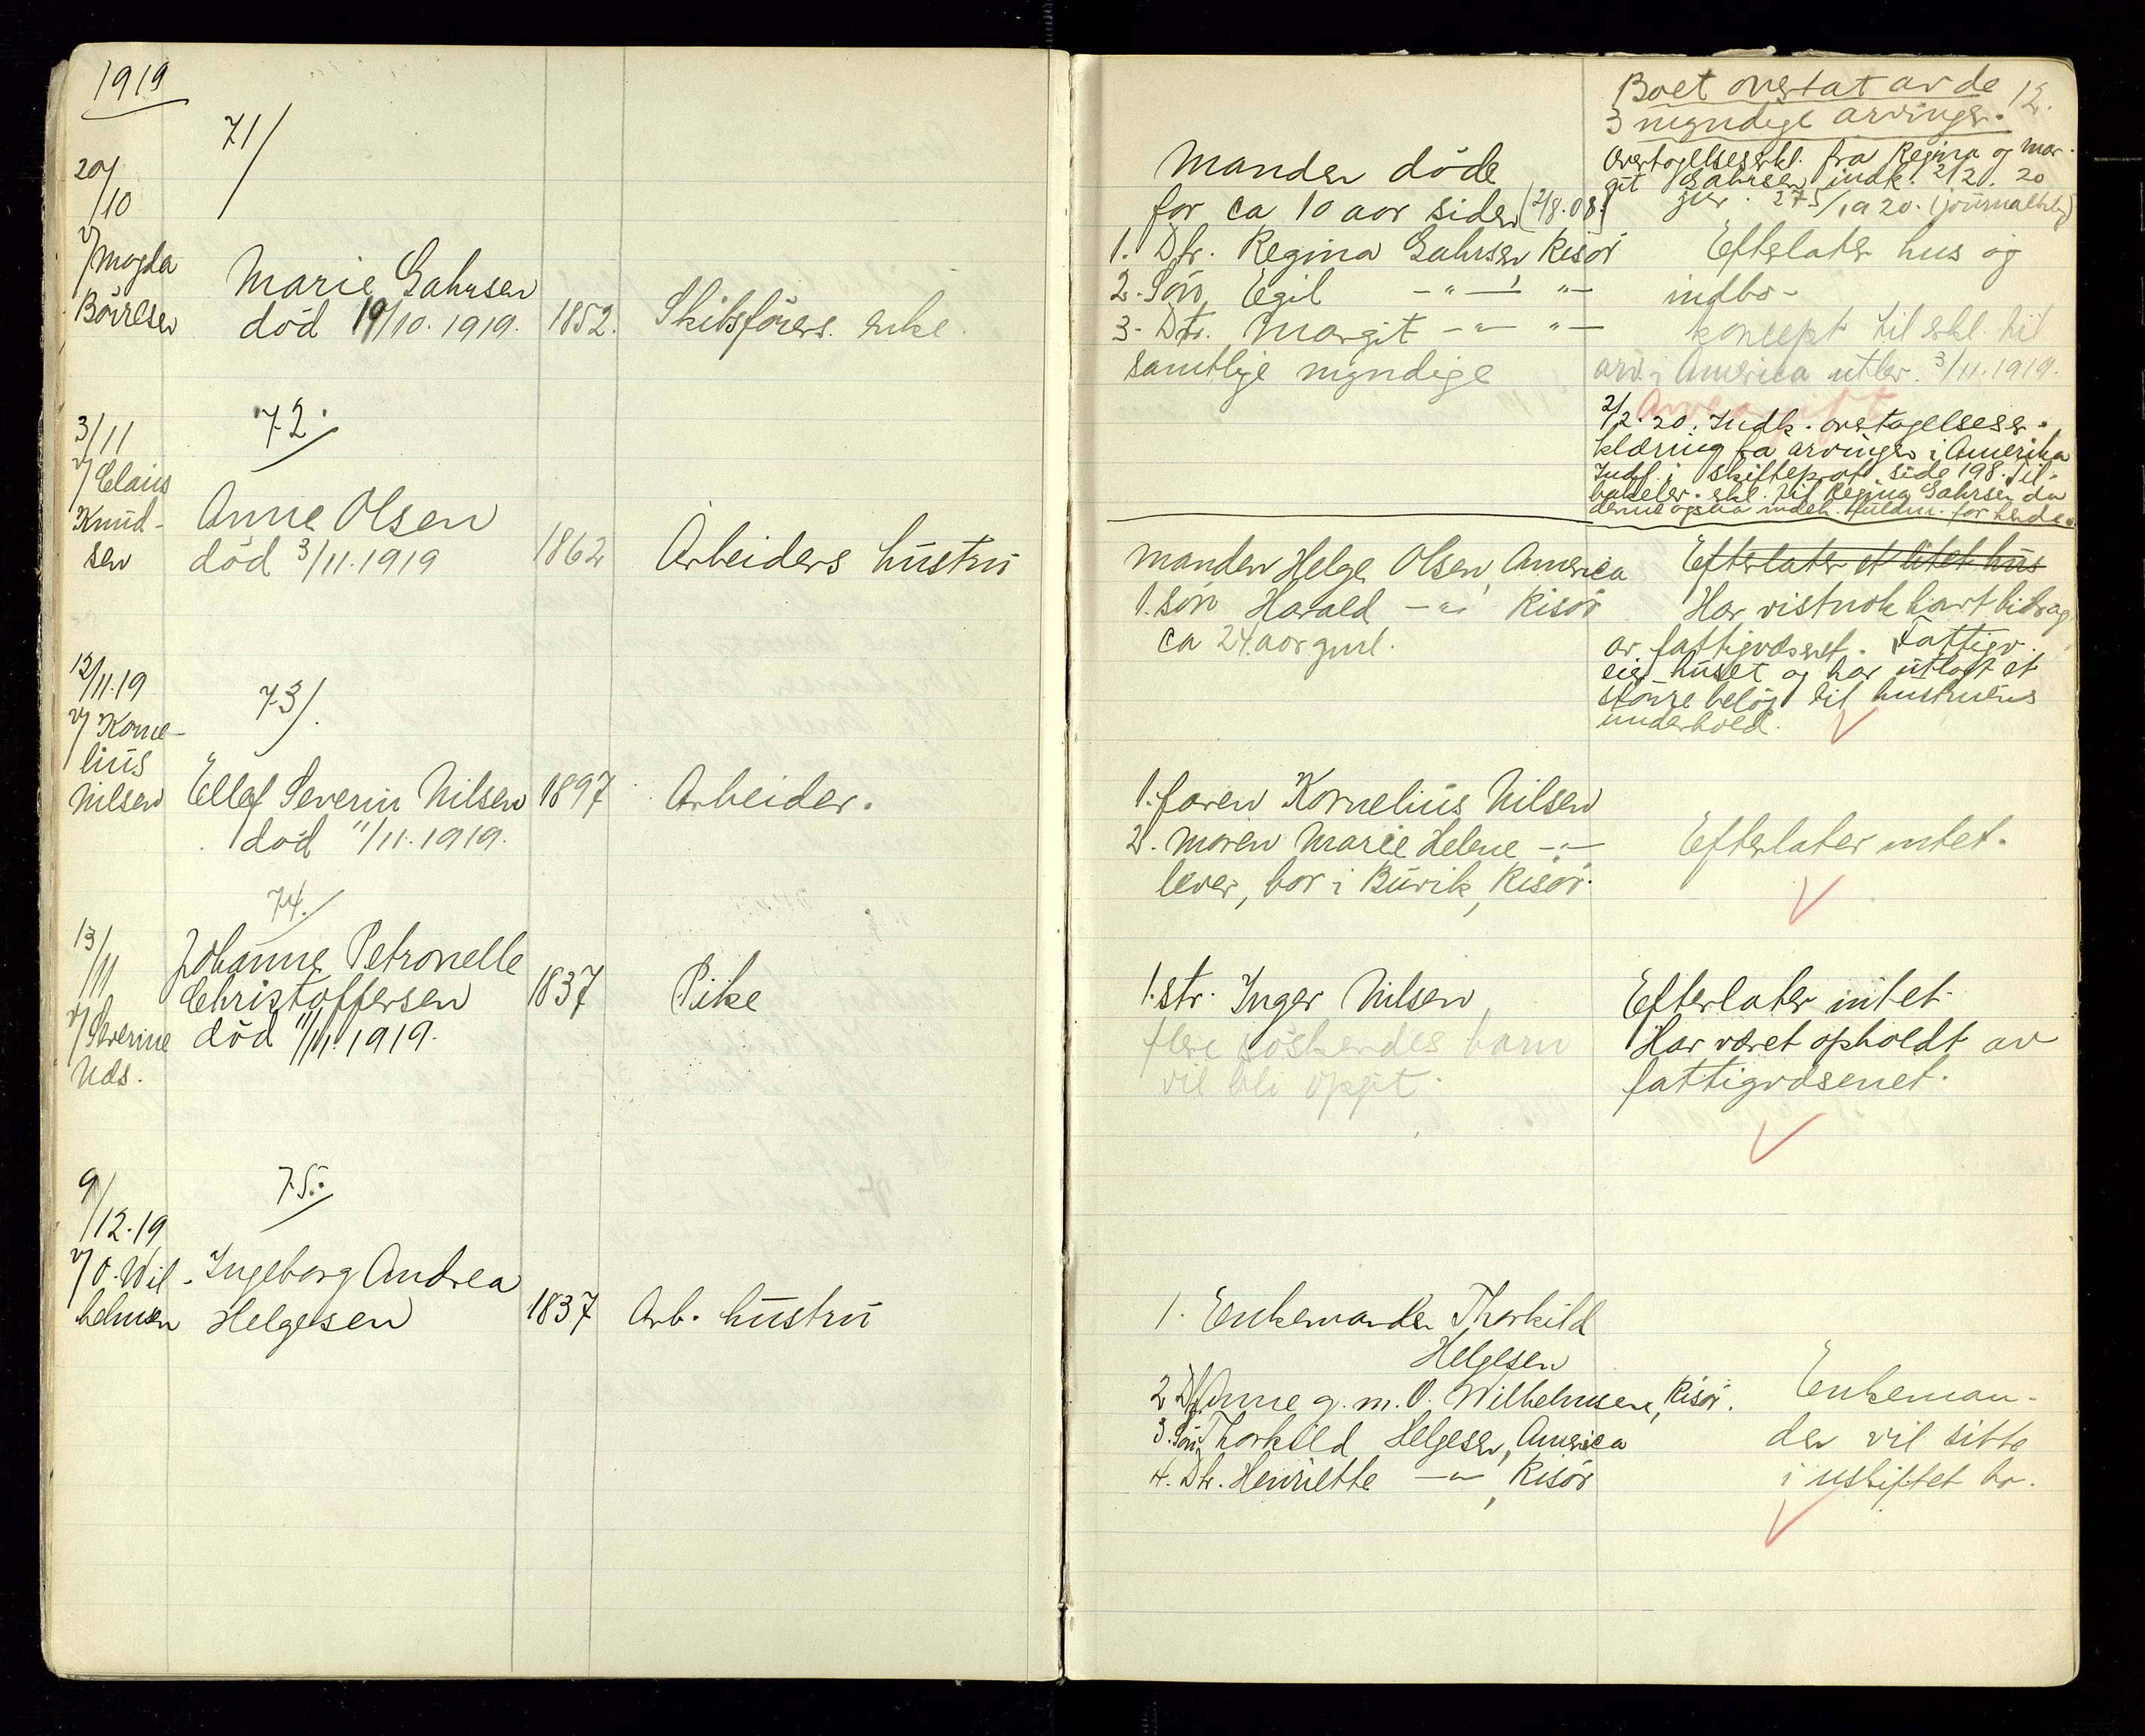 1919
71/
20/
/10
v/ Magda
Börresen
Marie Gahrsen
död 19/10. 1919.
1852.
Skibsförers enke.
3/11
72.
v/ Claus
Knud-
sen
Anne Olsen
död 3/11. 1919
1862
Arbeiders hustru
12/11.19
73/.
v/ Korne-
lius
Nilsen
Ellef Severin Nilsen
död 11/11. 1919.
1897
Arbeider.
74./
13/
/11
v/ Severine
Næs.
Johanne Petronelle
Christoffersen
död 11/11. 1919.
1837
Pike
9/
/12.19
75.
v/ O. Wil-
helmsen
Ingeborg Andrea
Helgesen
1837
Arb. hustru
12.
Manden döde
for ca 10 aar siden (2/8.08)
1. Dtr. Regina Gahrsen Risör
2. Sön Egil —"— , "—
3. Dtr. Margit —"— "—
samtlige myndige
Boet overtat av de
3 myndige arvinger.
Overtagelseserkl. fra Regina og Mar-
git Gahrsen indk. 2/2. 20
jnr. 275/1920. (journalbilag)
Efterlater hus og
indbo-
koncept til erkl. til
arv. i America utlev. 3/11.1919.
Arveavgift
2/2.20. Indk. overtagelseser-
klæring fra arvingen i Amerika
Indf. i skifteprot. side 198. Til-
bakelev. erkl. til Regina Gahrsen da
denne ogsaa indeh. fuldm. for hende.
Manden Helge Olsen, America
1. Sön Harald —"— Risör
ca 24 aar gml.
Efterlater et litet hus
Har vistnok hat bidrag
av fattigvæsenet. Fattigv.
eier huset og har utlagt et
större belöp til hustruens
underhold.
1. faren Kornelius Nilsen
2. moren Marie Helene —"—
lever, bor i Buvik, Risör.
Efterlater intet.
1. str. Inger Nilsen,
flere söskendes barn
vil bli opgit.
Efterlater intet.
Har været opholdt av
fattigvæsenet.
1. Enkemanden Thorkild
Helgesen
2 Dtr. Anne g. m. O. Wilhelmsen, Risör.
3. Sön Thorkild Helgesen, America
4. Dtr. Henriette —"— , Risör
Enkeman-
den vil sitte
i uskiftet bo.